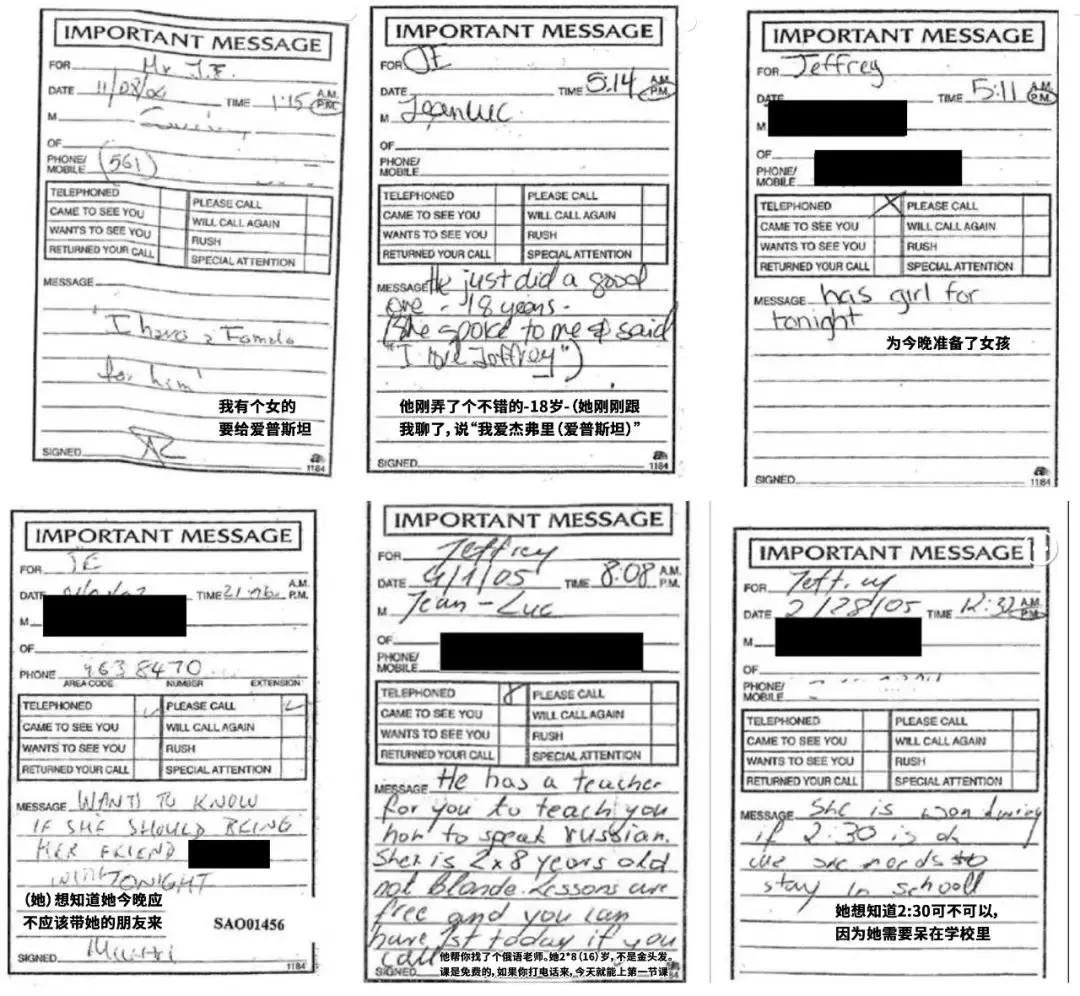 IMPORTANT MESSAGE
FOR Mr. J.E.
DATE 11/08/04 TIME 1:15 A.M. P.M.
M
OF
PHONE/ MOBILE (561)
TELEPHONED PLEASE CALL
CAME TO SEE YOU WILL CALL AGAIN
WANTS TO SEE YOU RUSH
RETURNED YOUR CALL SPECIAL ATTENTION
MESSAGE
"I have a Female
for him"
我有个女的
要给爱普斯坦
SIGNED
1184
IMPORTANT MESSAGE
FOR JE
DATE TIME 5:14 A.M. P.M.
M Jean Luc
OF
PHONE/ MOBILE
TELEPHONED PLEASE CALL
CAME TO SEE YOU WILL CALL AGAIN
WANTS TO SEE YOU RUSH
RETURNED YOUR CALL SPECIAL ATTENTION
MESSAGE He just did a good
one - 18 years -
(She spoke to me & said
"I love Jeffrey")
他刚弄了个不错的-18岁-(她刚刚跟
我聊了，说“我爱杰弗里(爱普斯坦)”
SIGNED
1184
IMPORTANT MESSAGE
FOR Jeffrey
DATE TIME 5:11 A.M. P.M.
M
OF
PHONE/ MOBILE
TELEPHONED X PLEASE CALL
CAME TO SEE YOU WILL CALL AGAIN
WANTS TO SEE YOU RUSH
RETURNED YOUR CALL SPECIAL ATTENTION
MESSAGE has girl for
tonight
为今晚准备了女孩
SIGNED
1184
IMPORTANT MESSAGE
FOR JE
DATE TIME A.M. P.M.
M
OF
PHONE 963 8470
AREA CODE NUMBER EXTENSION
TELEPHONED PLEASE CALL
CAME TO SEE YOU WILL CALL AGAIN
WANTS TO SEE YOU RUSH
RETURNED YOUR CALL SPECIAL ATTENTION
MESSAGE WANTS TO KNOW
IF SHE SHOULD BRING
HER FRIEND
TONIGHT
(她)想知道她今晚应
不应该带她的朋友来
SAO01456
SIGNED
1184
IMPORTANT MESSAGE
FOR Jeffrey
DATE 4/1/05 TIME 8:08 A.M. P.M.
M Jean-Luc
OF
PHONE/ MOBILE
TELEPHONED PLEASE CALL
CAME TO SEE YOU WILL CALL AGAIN
WANTS TO SEE YOU RUSH
RETURNED YOUR CALL SPECIAL ATTENTION
MESSAGE He has a teacher
for you to teach you
how to speak russian.
She is 2x8 years old
not blonde. Lessons are
free and you can
have 1st today if you
call
他帮你找了个俄语老师。她2*8(16)岁，不是金头发。
课是免费的，如果你打电话来，今天就能上第一节课
SIGNED
IMPORTANT MESSAGE
FOR Jeffrey
DATE 2/28/05 TIME 12:32 A.M. P.M.
M
OF
PHONE/ MOBILE
TELEPHONED PLEASE CALL
CAME TO SEE YOU WILL CALL AGAIN
WANTS TO SEE YOU RUSH
RETURNED YOUR CALL SPECIAL ATTENTION
MESSAGE She is wondering
if 2:30 is ok
she needs to
stay in school
她想知道2:30可不可以，
因为她需要呆在学校里
SIGNED
1184